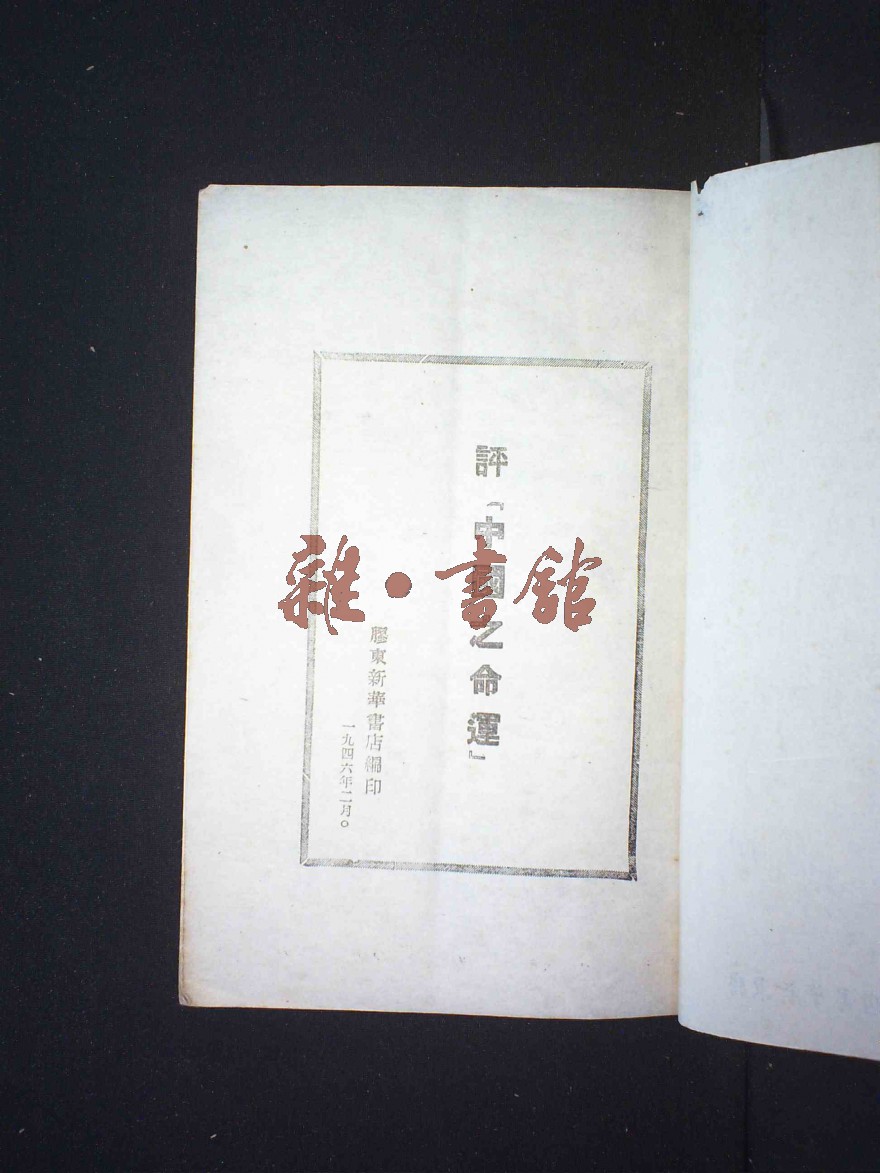 評「中國之命運」
膠東新華書店編印
一九四六年二月。
雜·書館